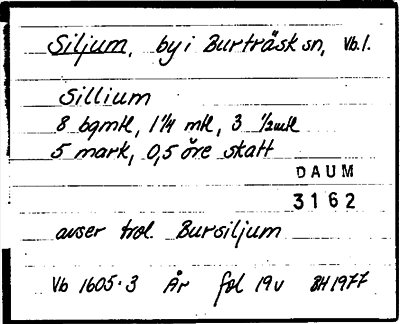 Siljum, by i Burträsk sn, Vb.l.
Sillium
8 bgmtl, 1 1/4 mtl, 3 1/2 mtl
5 mark, 0,5 öre skatt
DAUM
3162
avser trol. Bursiljum
Vb 1605:3 År fol 19v BH 1977